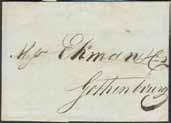 Messrs Ekman & Co
Gothenburg